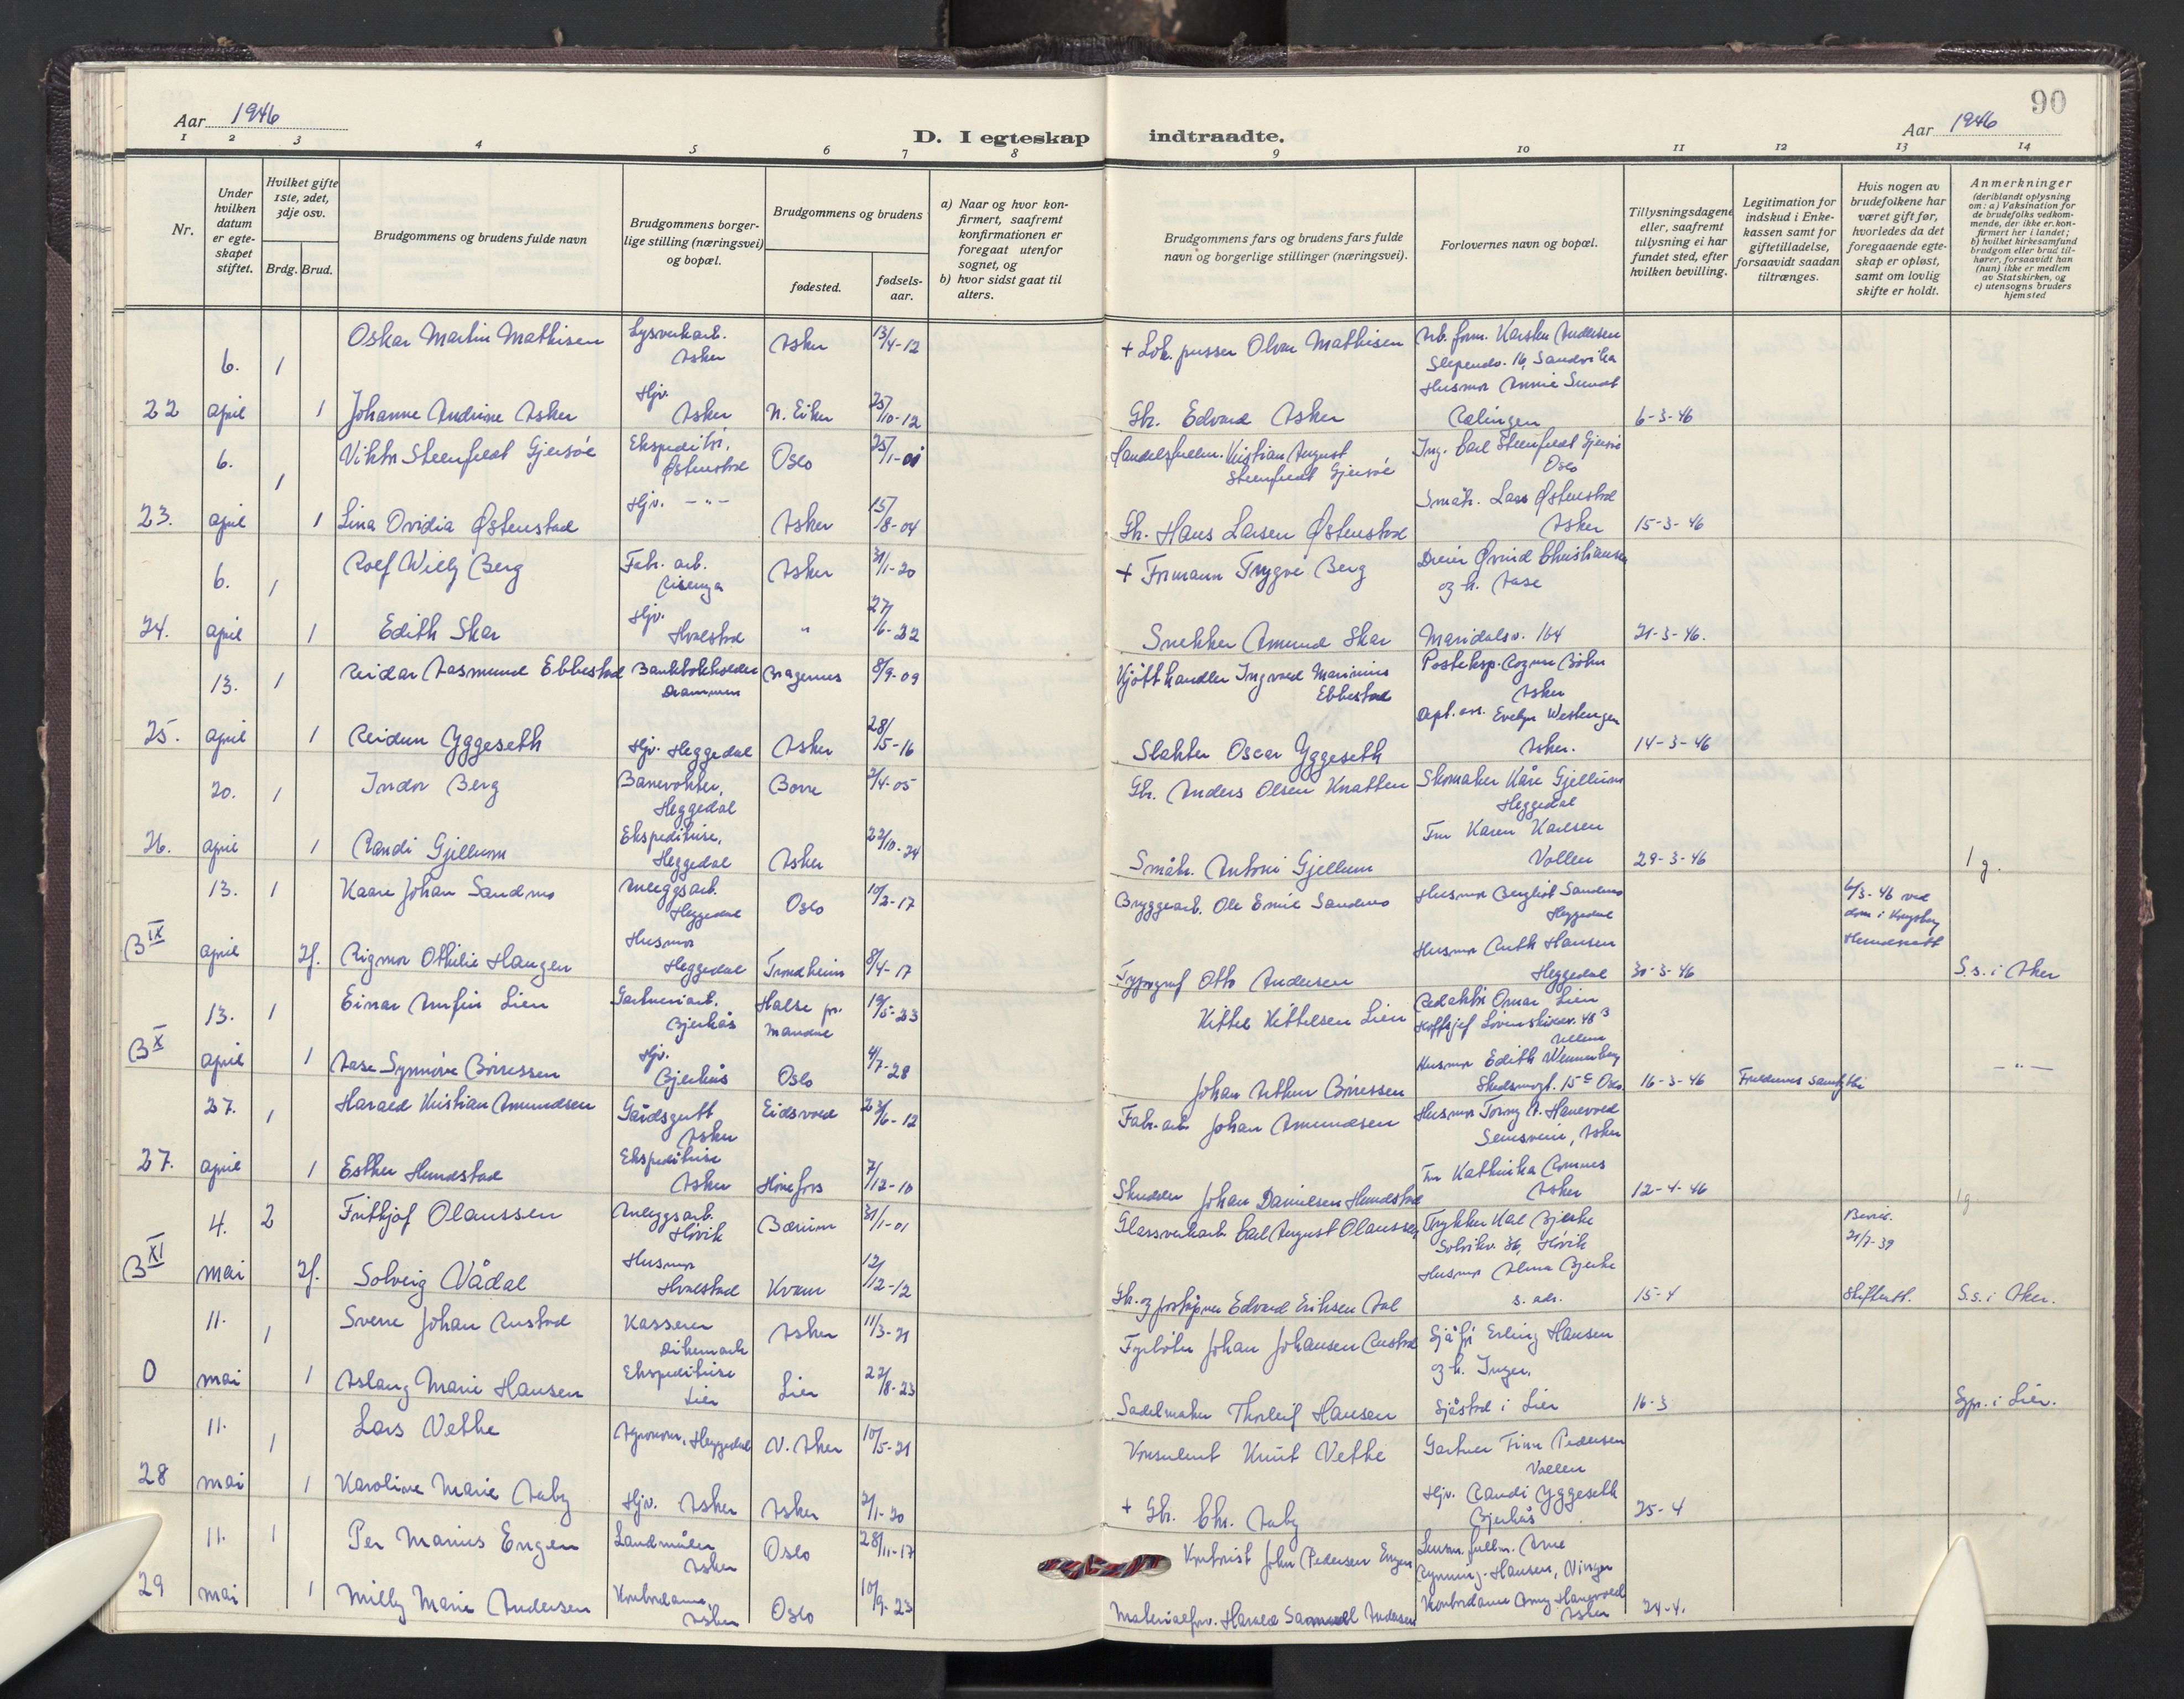 90
Aar 1946
D. I egteskap indtraadte.
Aar 1946
1 2 3 4 5 6 7 8 9 10 11 12 13 14
Nr.
Under hvilken datum er egteskapet stiftet.
Hvilket gifte 1ste, 2det, 3dje osv.
Brdg. Brud.
Brudgommens og brudens fulde navn
Brudgommens borgerlige stilling (næringsvei) og bopæl.
Brudgommens og brudens
fødested.
fødselsaar.
a) Naar og hvor konfirmert, saafremt konfirmationen er foregaat utenfor sognet, og
b) hvor sidst gaat til alters.
Brudgommens fars og brudens fars fulde navn og borgerlige stillinger (næringsvei).
Forlovernes navn og bopæl.
Tillysningsdagene eller, saafremt tillysning ei har fundet sted, efter hvilken bevilling.
Legitimation for indskud i Enkekassen samt for giftetilladelse, forsaavidt saadan tiltrænges.
Hvis nogen av brudefolkene har været gift før, hvorledes da det foregaaende egteskap er opløst, samt om lovlig skifte er holdt.
Anmerkninger (deriblandt oplysning om: a) Vaksination for de brudefolks vedkommende, der ikke er konfirmert her i landet; b) hvilket kirkesamfund brudgom eller brud tilhører, forsaavidt han (hun) ikke er medlem av Statskirken, og c) utensogns bruders hjemsted
6. 1 Oskar Martin Mathisen Lysverkarb. Asker Asker 13/4-12 + Lok. pusser Olvar Mathisen Arb. form. Karsten Andersen Slependv. 16, Sandvika
22 april 1 Johanne Andrine Asker Hjv. Asker N. Eiker 25/10-12 Gbr. Edvard Asker Husmor Annie Sundt Rælingen 6-3-46
6. 1 Viktor Steenfeldt Gjersøe Ekspeditør, Østenstad Oslo 25/1-01 Handelsfullm. Kristian August Steenfeldt Gjersøe Ing. Carl Steenfeldt Gjersøe Oslo
23. april 1 Lina Ovidia Østenstad Hjv. -"- Asker 15/8-04 Gbr. Hans Larsen Østenstad Småbr. Lars Østenstad Asker 15-3-46
6. 1 Rolf Willy Berg Fabr. arb. Risenga Asker 31/1-20 + Formann Trygve Berg Dreier Øvind Christiansen og h. Aase
24. april 1 Edith Skar Hjv. Hvalstad " 27/6-22 Snekker Amund Skar Maridalsv. 164 21-3-46.
13. 1 Reidar Aasmund Ebbestad Bankbokholder Drammen Bragernes 8/9-09 Kjøtthandler Ingvald Marinius Ebbestad Posteksp. Ragnar Bøhn Asker
25. april 1 Reidun Yggeseth Hjv. Heggedal Asker 28/5-16 Slakter Oscar Yggeseth Dept. ass. Evelyn Westengen Asker. 14-3-46
20. 1 Indor Berg Banevokter, Heggedal Borre 2/4-05 Gbr. Anders Olsen Knatten Skomaker Kåre Gjellum Heggedal
26. april 1 Randi Gjellum Ekspeditrise, Heggedal Asker 22/10-24 Småbr. Antoni Gjellum Fru Karen Karlsen Vollen 29-3-46
13. 1 Kaare Johan Sandmo Anleggsarb. Heggedal Oslo 10/2-17 Bryggearb. Ole Emil Sandmo Husmor Bergliot Sandmo Heggedal 6/3-46 ved dom i Kongsberg Herredsrett 1 g.
B IX april 2f. Rigmor Othilie Haugen Husmor Heggedal Trondheim 8/4-17 Typograf Otto Andersen Husmor Ruth Hansen Heggedal 30-3-46 S.s. i Aker
13. 1 Einar Arnfin Lien Gartneriarb. Bjerkås Halse pr. Mandal 19/5-23 Kittel Kittelsen Lien Redaktør Omar Lien Hoffsjef Løvenskioldsv. 48 B Ullern
B X april 1 Aase Synnøve Børresen Hjv. Bjerkås Oslo 4/7-28 Johan Arthur Børresen Husmor Edith Wennerberg Skedsmogt. 15 c Oslo 16-3-46 Foreldrenes samtykke -"-
27. 1 Harald Kristian Amundsen Gårdsgutt Asker Eidsvold 23/6-12 Fabr. arb Johan Amundsen Husmor Torny A. Hanevold Semsveien, Asker
27. april 1 Esther Hundstad Ekspeditrise Asker Hønefoss 7/12-10 Skredder Johan Danielsen Hundstad Fru Kathinka Romnes Asker 12-4-46
4. 2 Fritkjof Olaussen Anleggsarb. Høvik Bærum 31/1-01 Glassverkarb. Carl August Olaussen Trykker Karl Bjerke Solvikv. 36, Høvik Bevil. 21/7-39 1g
B XI mai 2f. Solveig Vådal Husmor Hvalstad Kvam 12/12-12 Gbr. og forskipper Edvard Eriksen Aal Husmor Alma Bjerke s. adr. 15-4 Skifteatt. S.s. i Aker.
11. 1 Sverre Johan Rustad Kasserer Dikemark Asker 11/3-21 Fyrbøter Johan Johansen Rustad Sjåfør Erling Hansen og h. Inger,
0 mai 1 Aslaug Marie Hansen Ekspeditrise Lier Lier 22/8-23 Sadelmaker Thorleif Hansen Sjåstad i Lier 16-3 Sgpr. i Lier.
11. 1 Lars Vethe Agronom, Heggedal V. Aker 10/5-21 Konsulent Knut Vethe Gartner Finn Pedersen Vollen
28 mai 1 Karoline Marie Aaby Hjv. Asker Asker 2/1-20 + Gbr. Chr. Aaby Hjv. Randi Yggeseth Bjerkås 25-4
11. 1 Per Marius Engen Landmåler Asker Oslo 28/11-17 Kontorist John Pedersen Engen Lensm. fullm. Arne Rynning-Hansen, Vinger
29 mai 1 Milly Marie Andersen Kontordame, Asker Oslo 10/9-23 Materialforv. Harald Samuel Andersen Kontordame Amy Hanevold Asker 24-4.